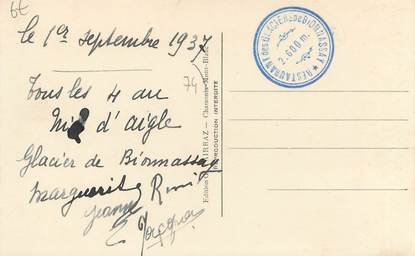 6€
le 1er septembre 1937
74
Tous les 4 au
Nid d'aigle
Glacier de Bionnassay
Marguerite
Jeanne
RESTAURANT des GLACIERS de BIONNASSAY
2.600 m.
Chamonix-Mont-Bl
REPRODUCTION INTERDITE
Edition